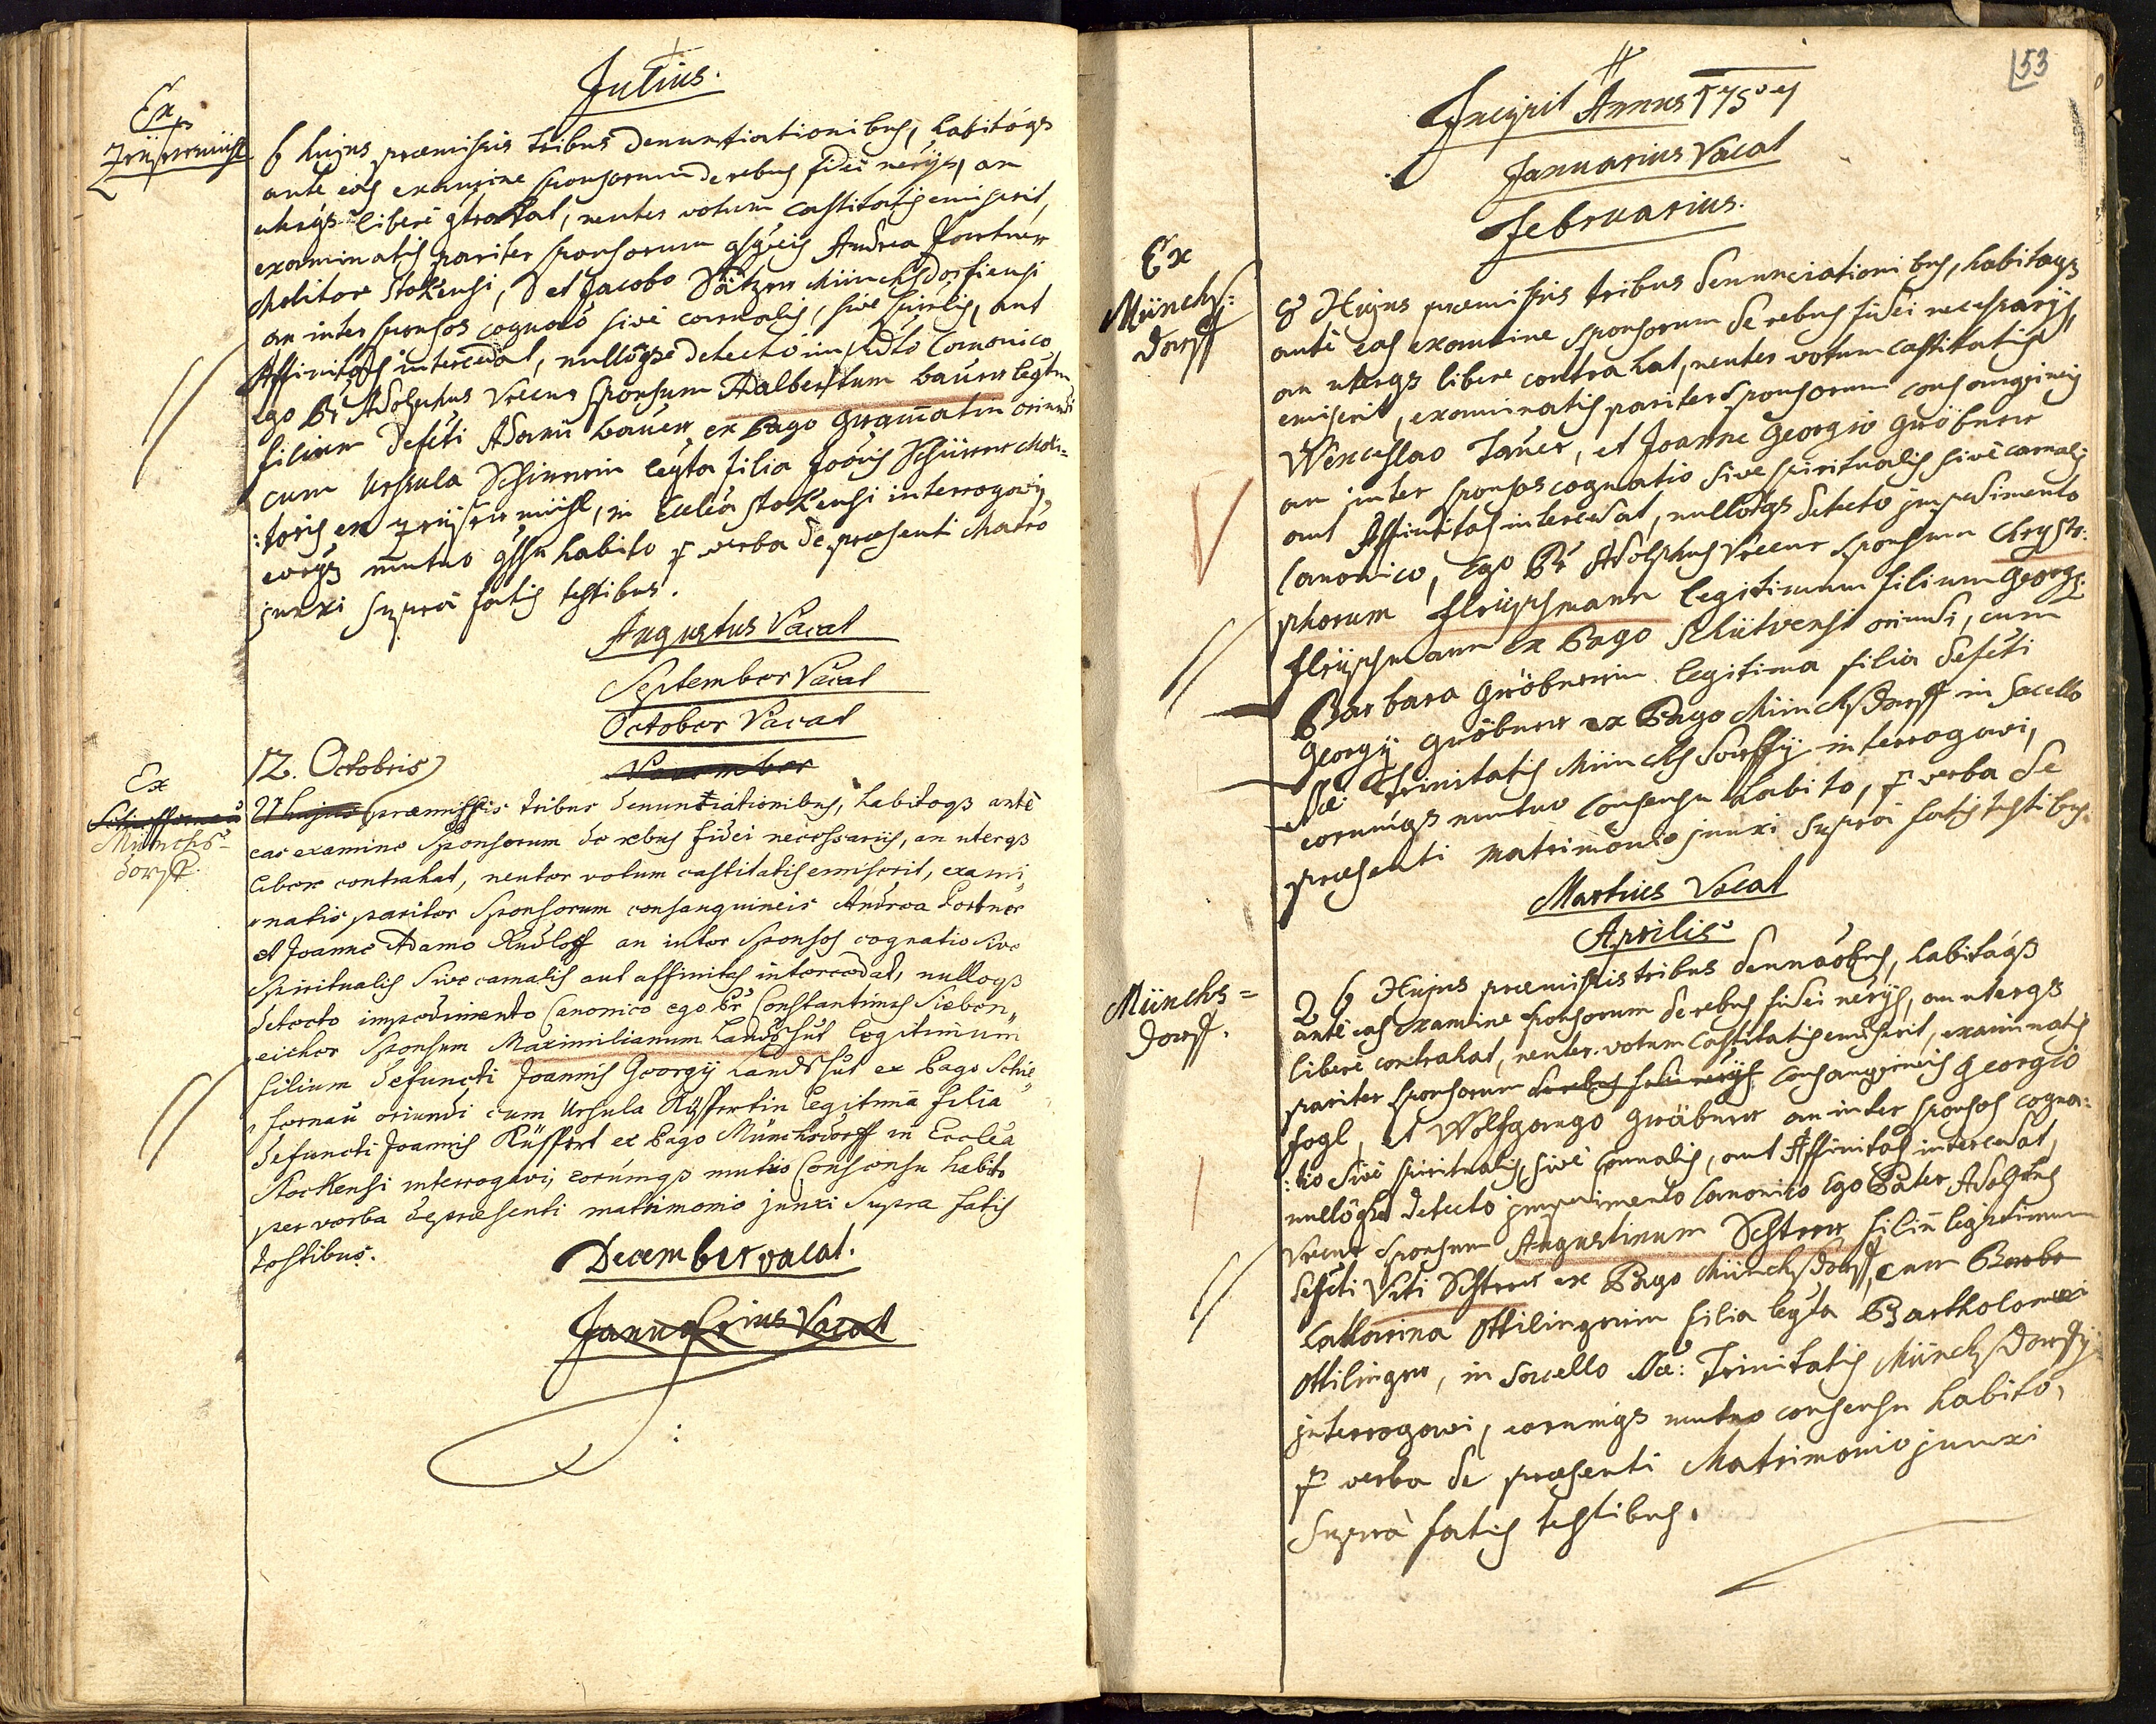 Julius.
Ex
6 hujus præmissis tribus denuntiationibus, habitoqs
ante eas examine sponsorum de rebus fidei nerijs, an
uterqs liberè gtrahat, neuter votum castitatis emiserit,
examinatis pariter sponsorum gsgneis Andrea Portner
Molitore Stokensi, et Jacobo Münchsdorfiensi
an inter sponsos cognaõ sivè carnalis, sive spirlis, aut
Affinitas intercedat, nullóqse detecto impdto Canonico
ego Pr Adolphus Vrecur Sponsum Adalbertum bäuer legtm
filium defcti Adami bäuer ex Pago oriundi
cum Ursula Schirrerin legta filia Joõis Schürer Moli=
:toris ex in Eccleã Stokensi interrogavi,
eorqs mutuo gssu habito p verba de præsenti Matrõ
junxi suprà fatis testibus.
Augustus Vacat
September Vacat
October Vacat
November
12. Octobris
Ex
Schieffernau
Münchs=
dorff
21 hujus præmissis tribus denuntiationibus, habitoqs antè
eas examine Sponsorum de rebus fidei necessariis, an uterqs
libere contrahat, neuter votum castitatis emiserit, exami
natis pariter Sponsorum consanguineis Andrea Portner
et Joanne Adamo Rudloff an inter Sponsos cognatio sive
Spiritualis sive carnalis aut affinitas intercedat, nulloqs
detecto impedimento Canonico ego Pr Constantinus Sieben,,
eicher Sponsum Maximilianum Landshut legitimum
filium defuncti Joannis Georgij Landshut ex Pago Schie,,
,,fernau oriundi cum Ursula Rüppertin legitima filia
defuncti Joannis Rüppert ex Pago Münchsdorff in Eccleã
Stockensi interrogavi, eorúmqs mutuo Consensu habito
per verba de præsenti matrimonio junxi supra fatis
testibus.
December vacat.
Januarius Vacat
53
Incipit Annus 1750
Januarius Vacat
Februarius.
Ex
Münchs:
dorff
8 Hujus præmissis tribus denunciationibus, habitoqs
antè eas examine sponsorum de rebus fidei necessarijs,
an uterqs libere contrahat, neuter votum castitatis
emiserit, examinatis pariter sponsorum consangvineis
Wenceslao Taüer, et Joanne Georgio Gröbner
an inter sponsos cognatio sive spiritualis sivè carnalis
aut Affinitas intercedat, nullóqs detecto impedimento
Canonico, Ego Pr Adolphus Vrecur sponsum Chrysto:
phorum Fleyschmann legitimum filium Georgij
Fleyschmann ex Pago Schütwensi oriundi, cum
Barbara Gröbnerin legitima filia defcti
Georgij Gröbner ex Pago Münchsdorff in sacello
SSæ Trinitatis Münchsdorffij interrogavi,
eorumqs mutuo consensu habito, p verba de
præsenti matrimonio junxi suprà fatis testibus.
Martius Vacat
Aprilis
Münchs=
dorff.
26 Hujus præmissis tribus dennãõbus, habitáqs
antè eas examine sponsorum de rebus fidei nerijs, an uterqs
liberè contrahat, neuter votum castitatis emiserit, examinatis
pariter sponsorum de rebus fidei nerijs consangvineis Georgio
Fogl, et Wolfgango Gröbner an inter sponsos cogna:
:tio sivè spiritualis, sivè carnalis, aut Affinitas intercedat,
nullóqse detecto impedimento Canonico Ego Pater Adolphus
Vrecur sponsum Augustinum Schterr filiũ legitimum
defcti Viti Schterr ex Pago Münchsdorff, cum Barba
Catharina Ottilingerin filia legta Bartholomæi
Ottilinger, in sacello SSæ: Trinitatis Münchsdorffij
interrogavi, eorumqs mutuo consensu habito,
p verba de præsenti Matrimonio junxi
suprà fatis testibus.